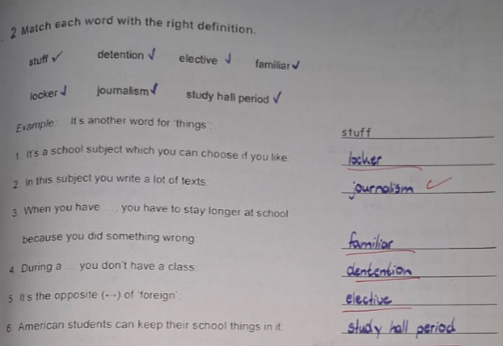 2 Match each word with the right definition.
stuff ✓ detention ✓ elective ✓ familiar ✓
locker ✓ journalism ✓ study hall period ✓
Example: It's another word for 'things': stuff
1 It's a school subject which you can choose if you like: locker
2 In this subject you write a lot of texts: journalism ✓
3 When you have .... you have to stay longer at school
because you did something wrong: familiar
4 During a ... you don't have a class: dentention
5 It's the opposite (↔) of 'foreign': elective
6. American students can keep their school things in it: study hall period